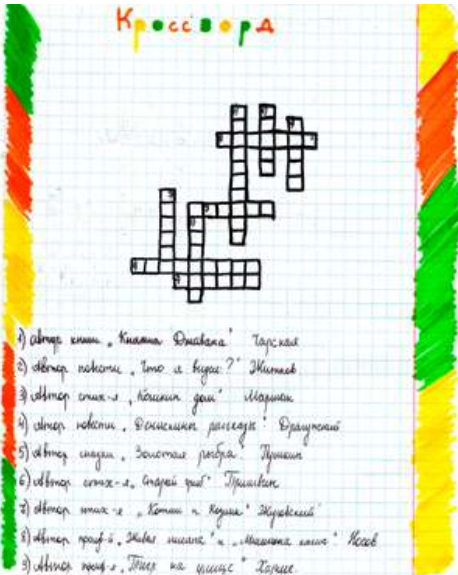 Кроссворд
1) автор книги "Княжна Джаваха" Чарская
2) Автор повести "Что я видел?" Житков
3) Автор стих-я "Кошкин дом" Маршак
4) Автор повести "Денискины рассказы" Драгунский
5) Автор сказки "Золотая рыбка" Пушкин
6) Автор стих-я "Старый гриб" Пришвин
7) Автор стих-я "Котик и Козлик" Жуковский
8) Автор произ-й "Живая шляпа" и "Мишкина каша" Носов
9) Автор произ-я на улице" Хармс